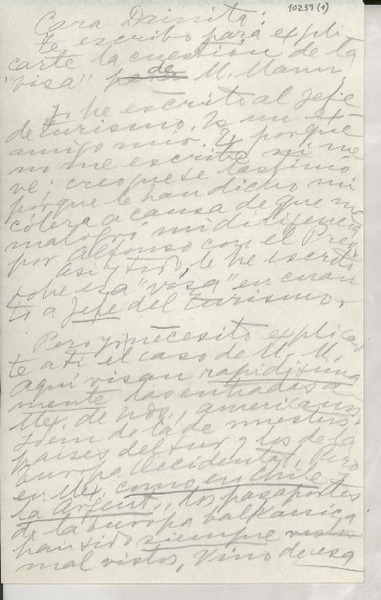 10239 (1)
Cara Dzinita:
te escribo para expli
carte la cuestión de la
"visa" de M. Mann
Yo he escrito al Jefe
de turismo. Es un
amigo mío. Y porqué
no me escribe ni me
ve; creo que se lastimó
porque le han dicho mi
cólera a causa de que
malogró mi diligencia
por Alfonso con el Pres.
Así y todo, le he escrito
sobre esa "visa" en cuan
to a Jefe del Turismo.
Pero yo necesito explicar
te a ti el caso de M. M.
Aquí visan rapidísima
mente las entradas a
Mex. de nor. americanos
idem de la de nuestros
países del sur y los de la
Europa Occidental. Pero
en Mex. como en Chile y
la Argent., los pasaportes
de la Europa balkánica
han sido siempre vistos
mal vistos, Vino de esa